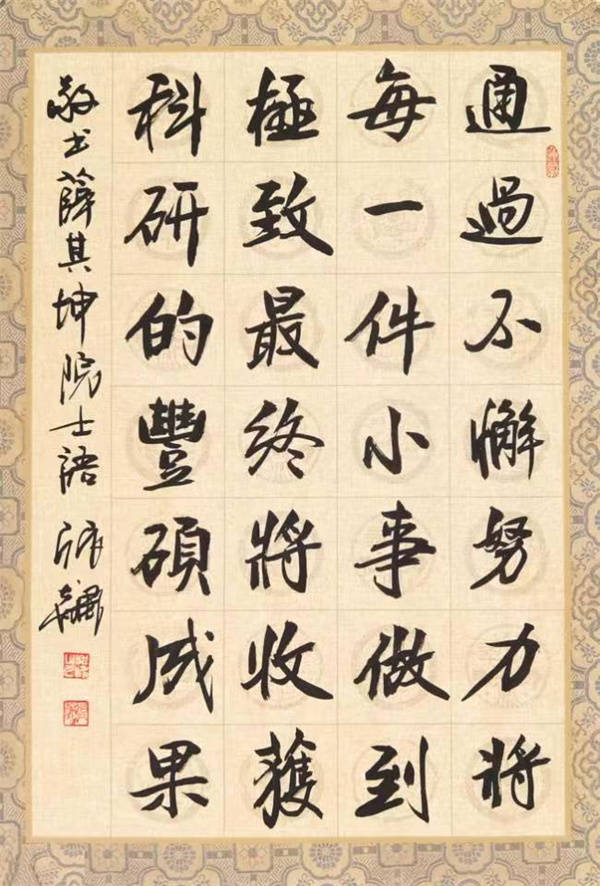 通過不懈努力將
每一件小事做到
極致最終將收獲
科研的豐碩成果
敬书薛其坤院士語